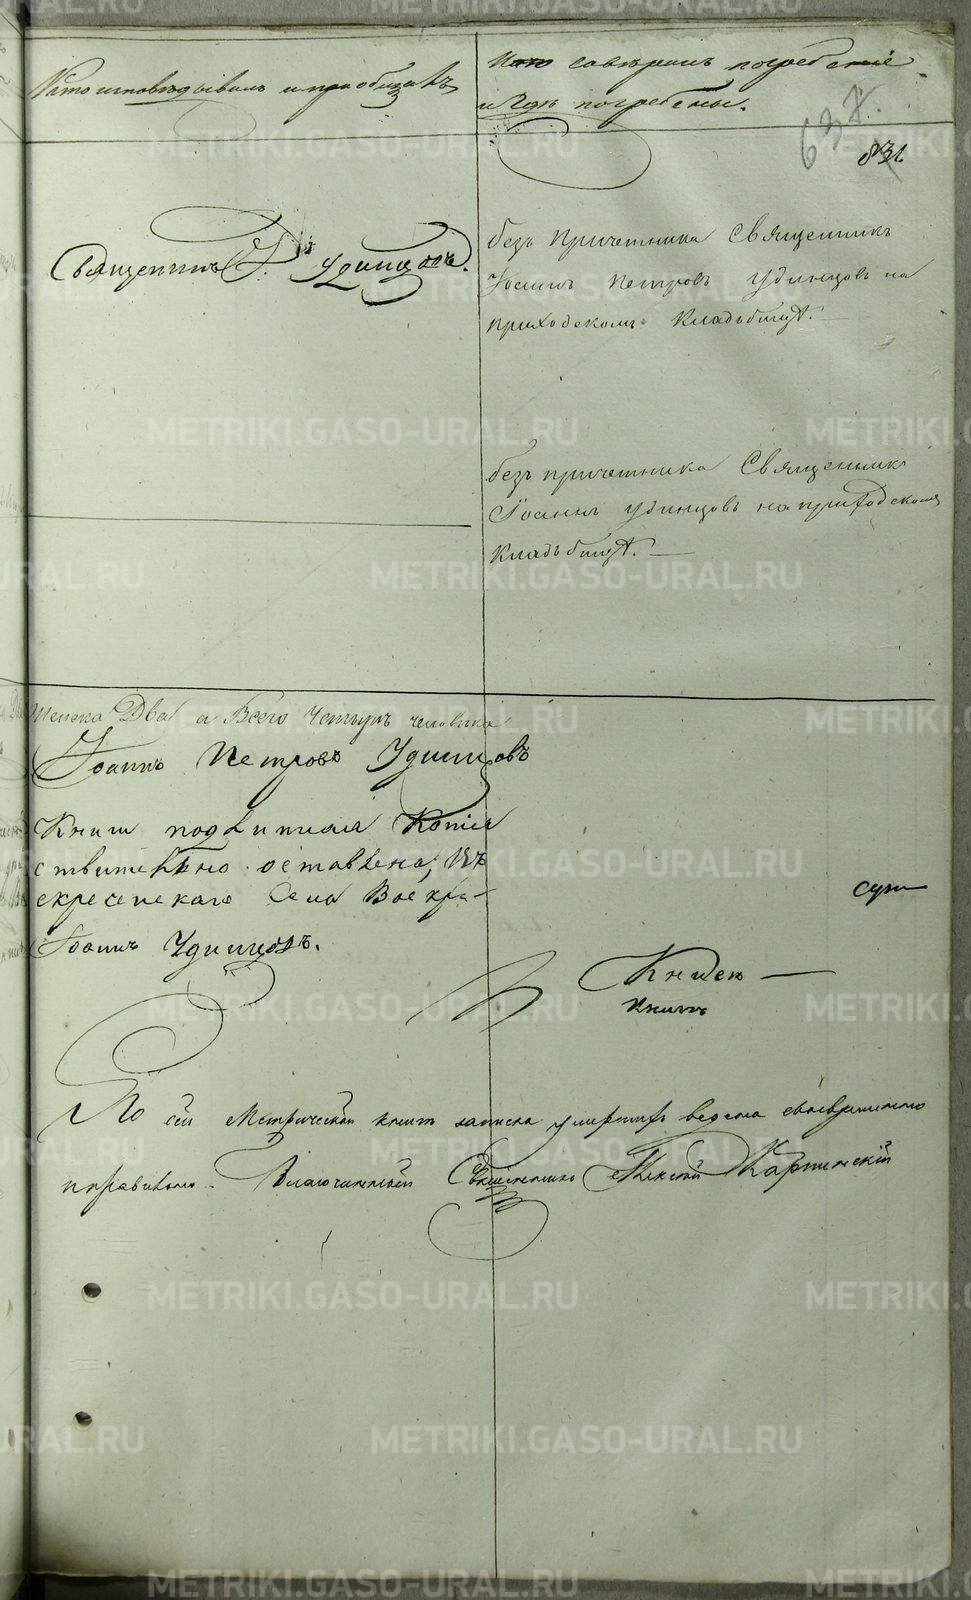 Кто исповѣдывалъ и приобщалъ
Кто совершилъ погребеніе
и Гдѣ погребены.
637.
831.
Священникъ І. П. Удинцовъ.
безъ Причетника Священникъ
Іоаннъ Петровъ Удинцовъ на
приходскомъ Кладьбищѣ.
безъ причетника Священникъ
Іоаннъ Удинцовъ на приходскомъ
Кладьбищѣ.
Женска Два а Всего Четыре человѣка
Іоаннъ Петровъ Удинцовъ
Книги подлинная Копія
ствительно оставлена, въ
скресенскаго Села Воскре-
сую
Іоаннъ Удинцовъ.
Книгъ
По сей Метрической книгѣ записка умершихъ ведена своевременно
правильно. Благочинный Священникъ Алексій Карпинскій
METRIKI.GASO-URAL.RU